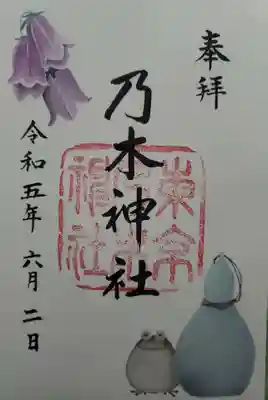 奉拝
乃木神社
令和五年 六月 二日